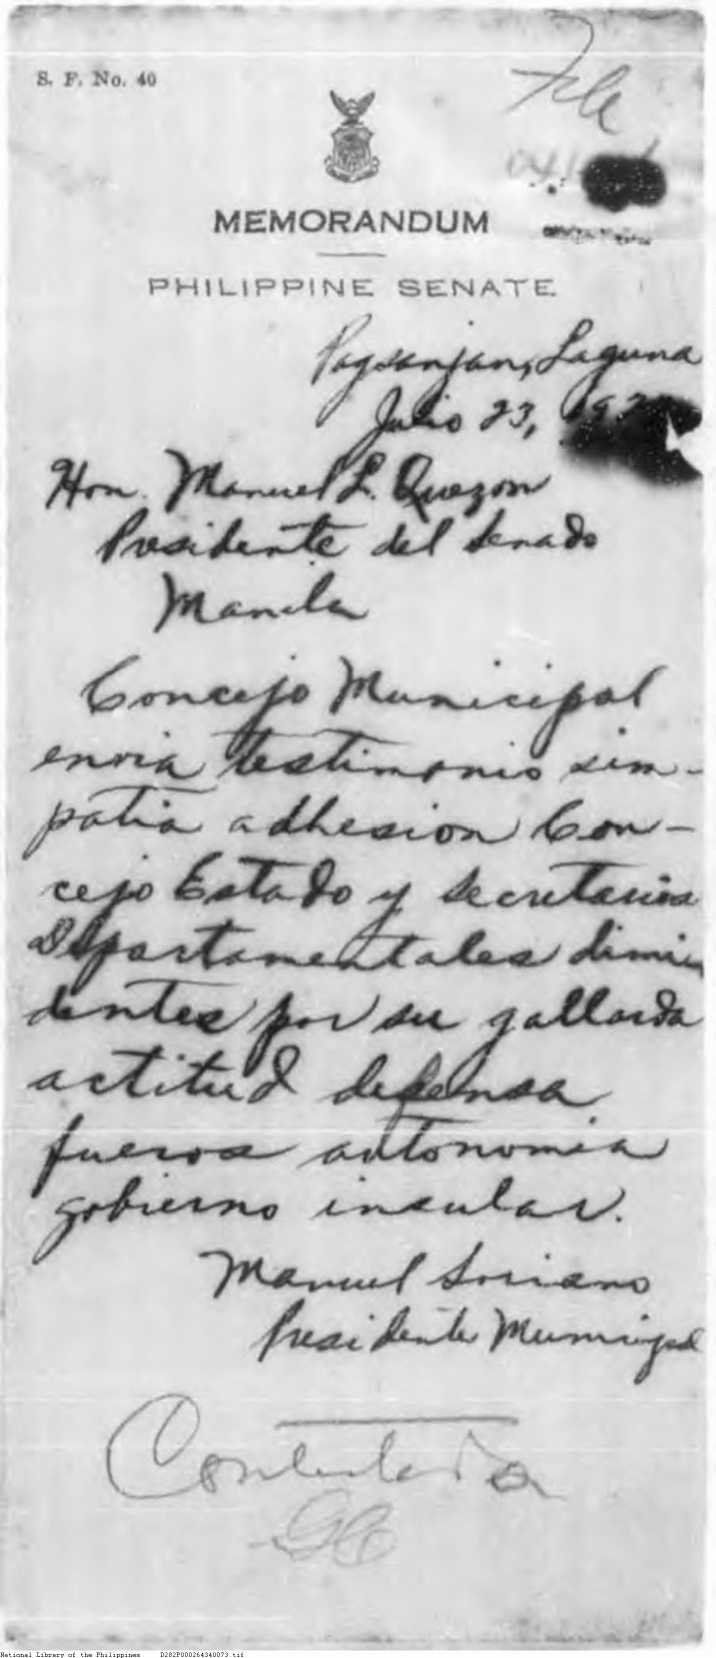 S. F. No. 40
File
MEMORANDUM
PHILIPPINE SENATE
Pagsanjan, Laguna
Julio 23, 192
Hon. Manuel L. Quezon
Presidente del Senado
Manila
Concejo Municipal
envia testimonio sim-
patia adhesion Con-
cejo Estado y Secretarios
Departamentales dimi
dentes por su gallarda
actitud defensa
fueros autonomia
gobierno insular.
Manuel Soriano
Presidente Municipal
Contestada
National Library of the Philippines D282P000264340073.tif